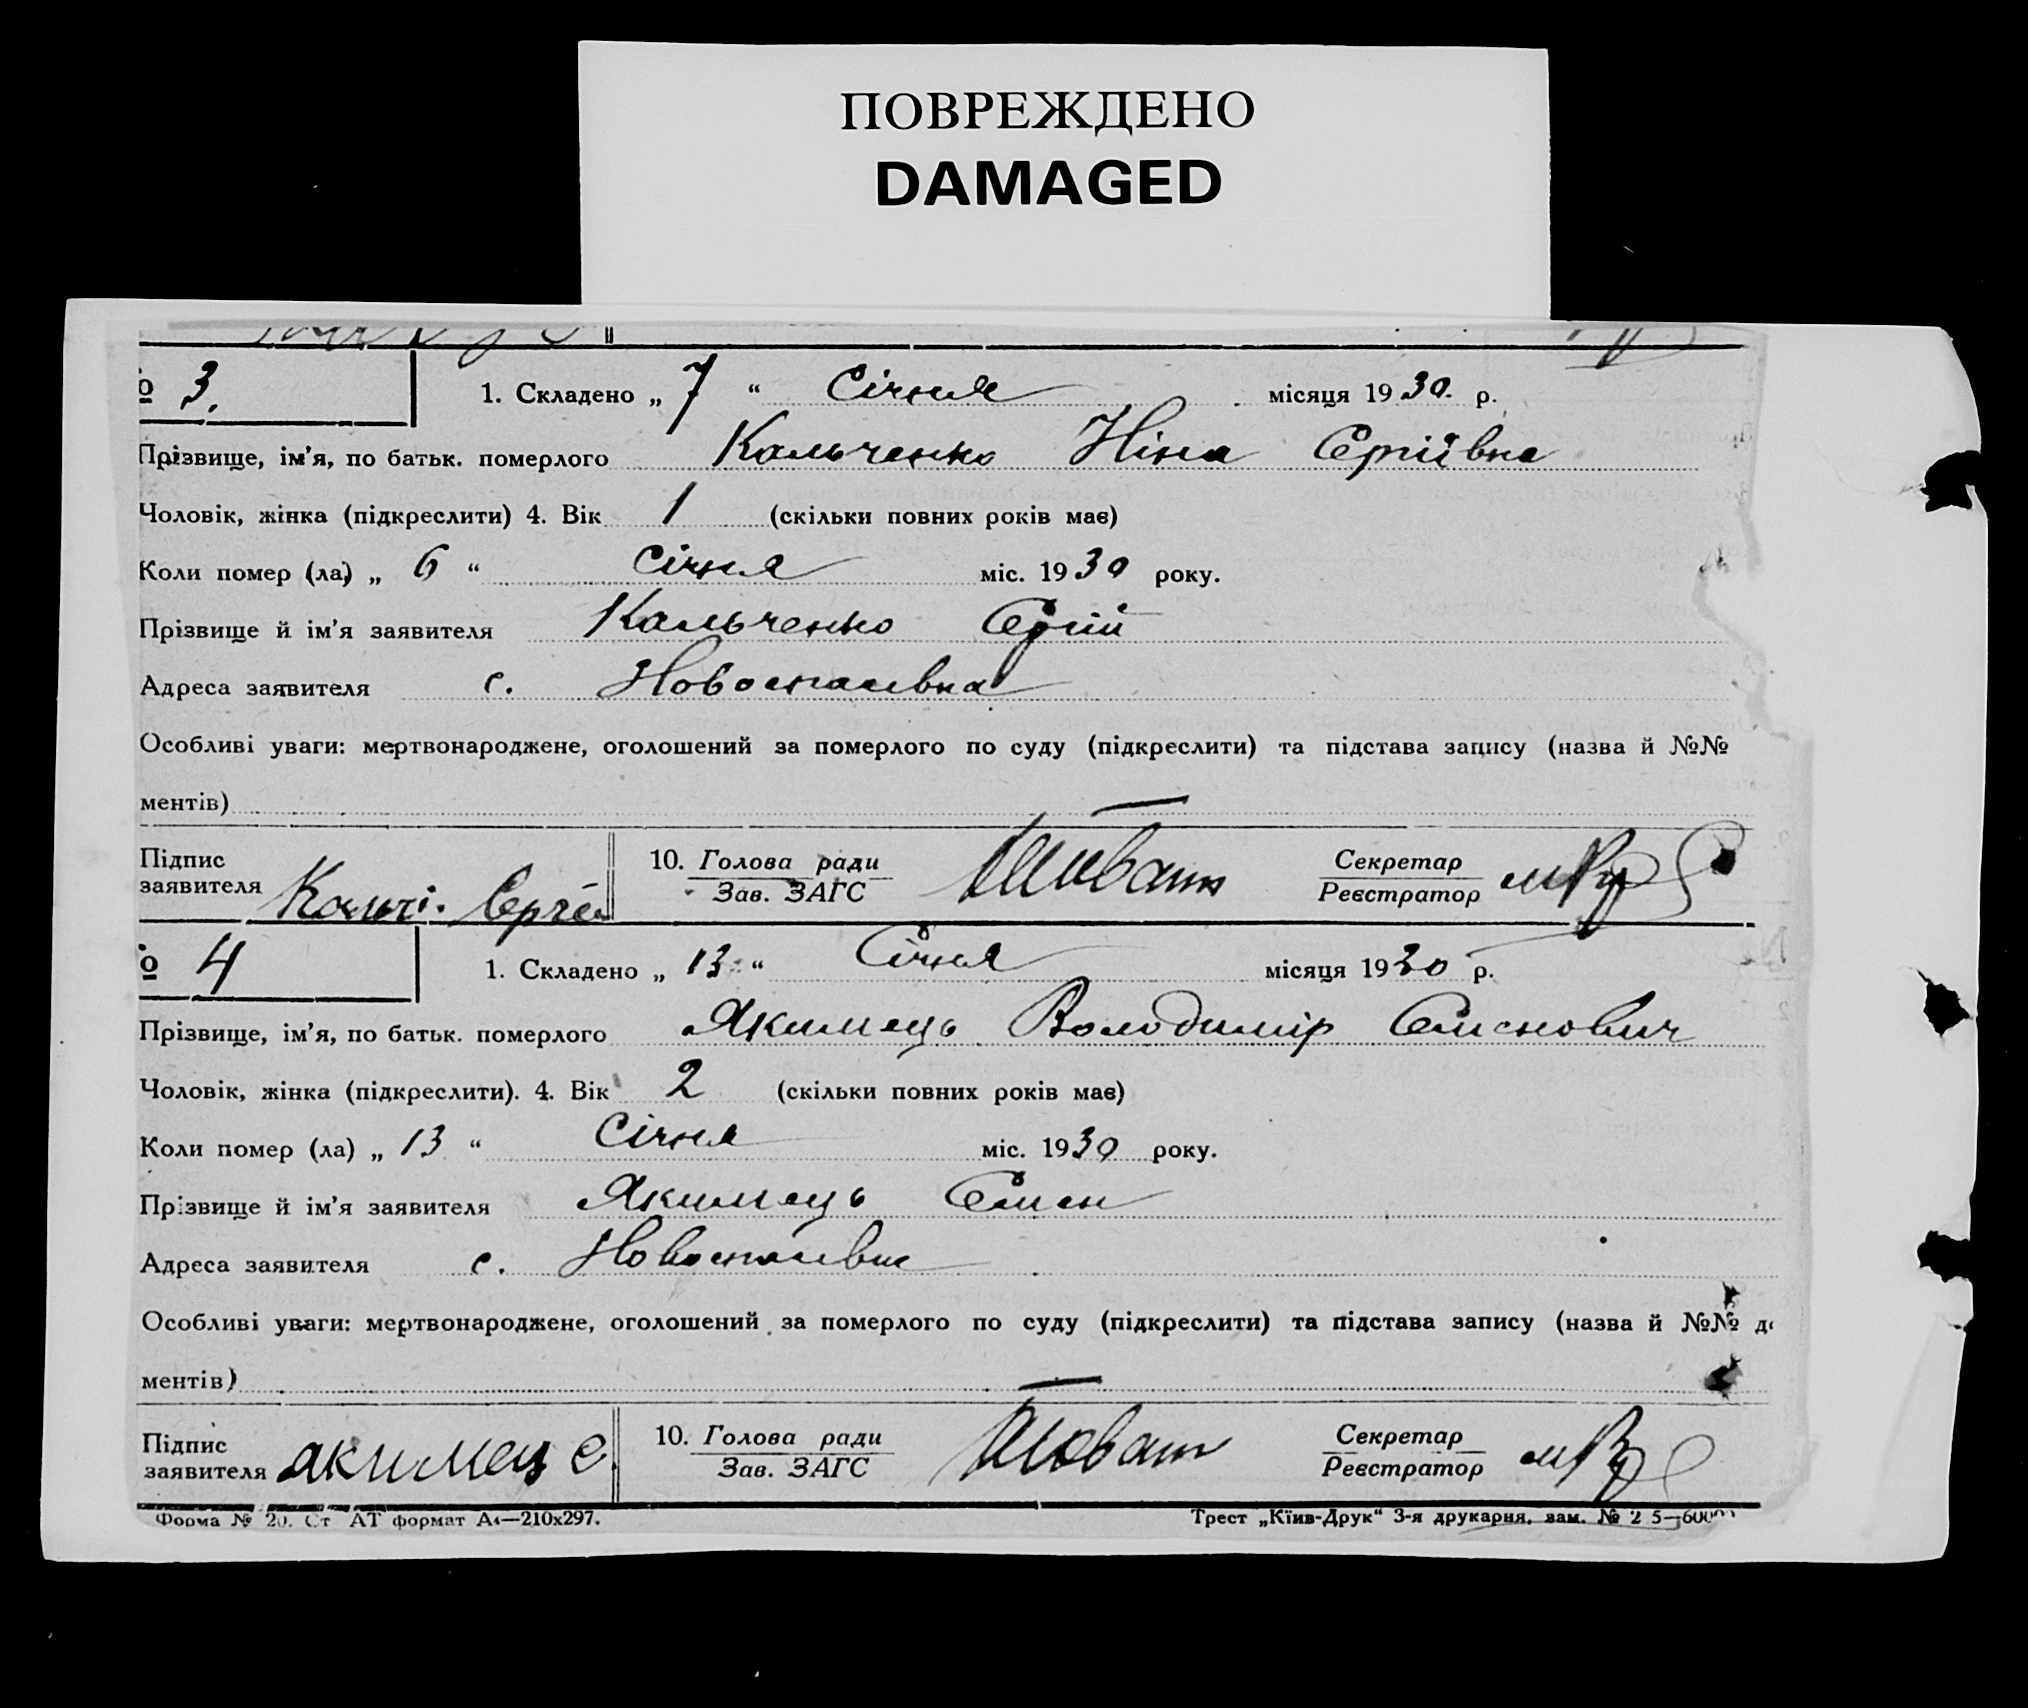 ПОВРЕЖДЕНО
DAMAGED
№ 3. 1. Складено „ 7 “ Січня місяця 1930. р.
Прізвище, ім'я, по батьк. померлого Кальченко Ніна Сергіївна
Чоловік, жінка (підкреслити) 4. Вік 1 (скільки повних років має)
Коли помер (ла) „ 6 “ Січня міс. 1930 року.
Прізвище й ім'я заявителя Кальченко Сергій
Адреса заявителя с. Новоспасівка
Особливі уваги: мертвонароджене, оголошений за померлого по суду (підкреслити) та підстава запису (назва й №№
ментів) —
Підпис заявителя 10. Голова ради Секретар
Зав. ЗАГС Реєстратор
№ 4 1. Складено „ 13 “ Січня місяця 1930 р.
Прізвище, ім'я, по батьк. померлого Якимець Володимір Семенович
Чоловік, жінка (підкреслити). 4. Вік 2 (скільки повних років має)
Коли помер (ла) „ 13 “ Січня міс. 1930 року.
Прізвище й ім'я заявителя Якимець Семен
Адреса заявителя с. Новоспасівка
Особливі уваги: мертвонароджене, оголошений за померлого по суду (підкреслити) та підстава запису (назва й №№ до
ментів) —
Підпис заявителя якимец С. 10. Голова ради Секретар
Зав. ЗАГС Реєстратор
Форма № 20. Ст АТ формат А4—210х297. Трест „Київ-Друк“ 3-я друкарня, зам. №